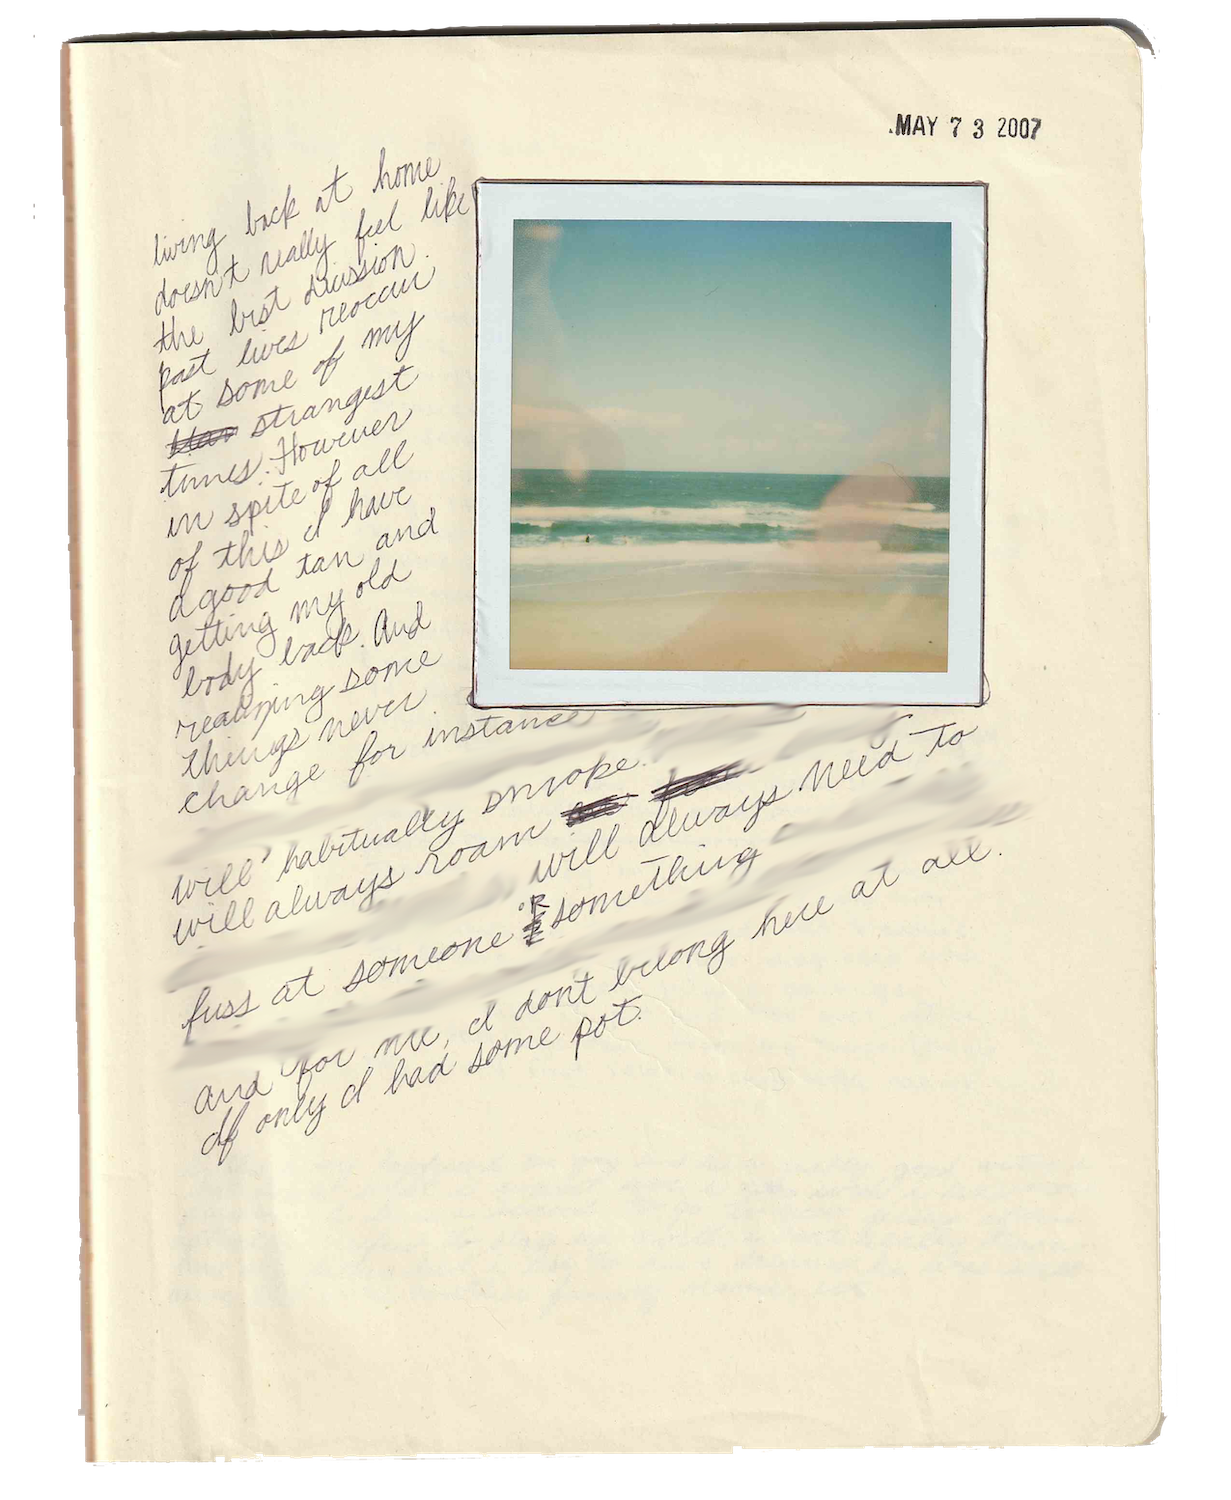 MAY 7 3 2007
living back at home
doesn't really feel like
the best dicission.
past lives reoccur
at some of my
strangest
times. However
in spite of all
of this I have
a good tan and
getting my old
body back. And
realizing some
things never
change for instance
will habitually smoke.
will always roam
will always need to
fuss at someone or something
and for me, I dont belong here at all.
If only I had some pot.